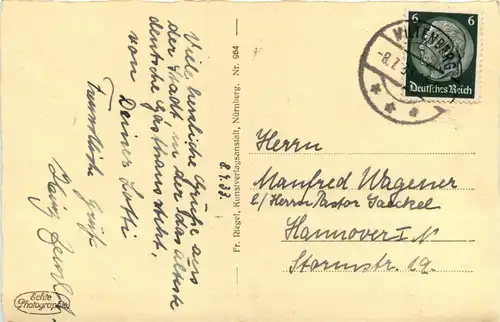 Viele herzliche Grüße aus
der Stadt in der das älteste
deutsche Gasthaus steht,
von Deiner Lotti
Freundliche Grüße
8.7.37.
Fr. Riegel, Kunstverlagsanstalt, Nürnberg. Nr. 964
Echte
Photographie
MILTENBERG
-8.7.3
6 6
Deutsches Reich
Herrn
Manfred Wagener
b/Herrn Pastor Jaeckel
Hannover I N
Stormstr. 19.